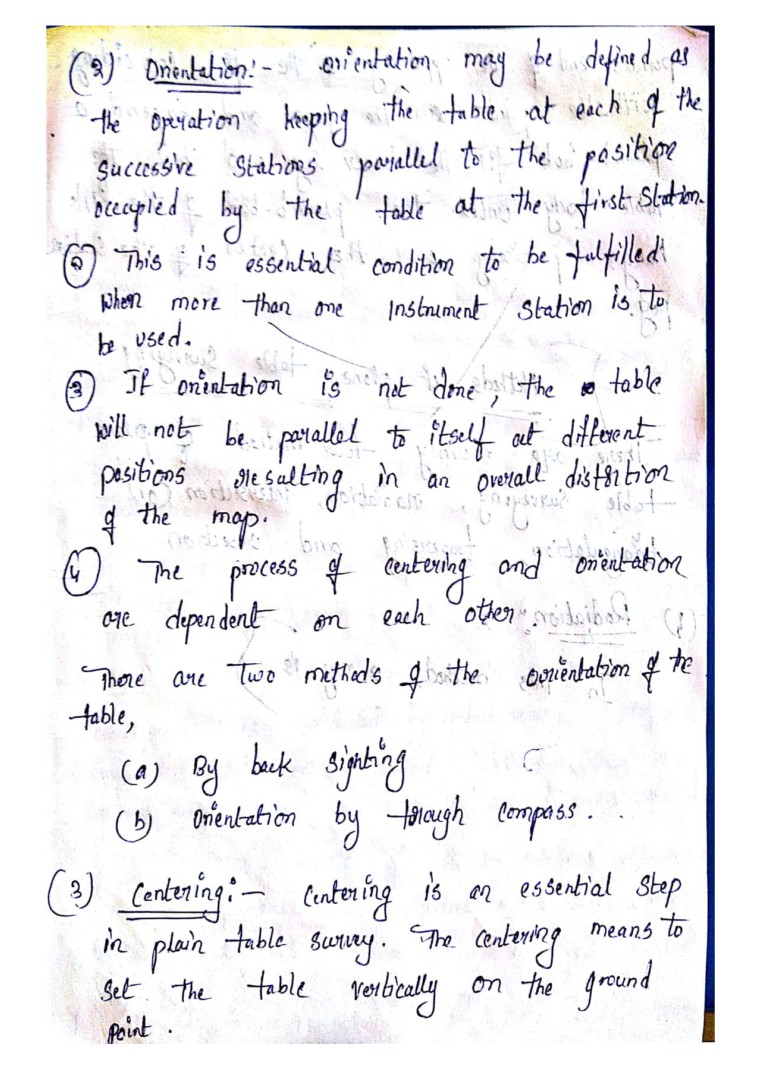 (2) Orientation:- orientation may be defined as
the operation keeping the table at each of the
successive stations parallel to the position
occupied by the table at the first station.
(2) This is essential condition to be fulfilled
when more than one instrument station is to
be used.
(3) If orientation is not done, the table
will not be parallel to itself at different
positions resulting in an overall distortion
of the map.
(4) The process of centering and orientation
are dependent on each other.
There are Two methods of the orientation of the
table,
(a) By back sighting
(b) orientation by trough compass.
(3) Centering:- Centering is an essential step
in plain table survey. The centering means to
set the table vertically on the ground
point.